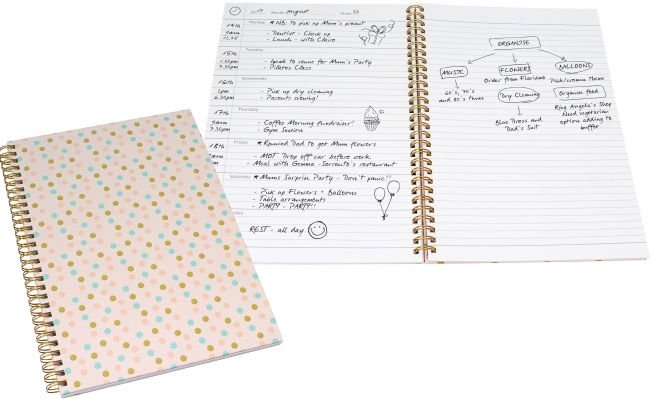 17 Month August Week 33
14th Monday * NB: to pick up Mum's present
9am - Dentist - Check up
12.45 - Lunch - with Claire
15th Tuesday
1.00pm - Speak to venue for Mum's Party
4.30pm - Pilates Class
16th Wednesday
1pm - Pick up dry cleaning
6.30pm - Parents evening!
17th Thursday
9am - Coffee Morning fundraiser!
7.30pm - Gym Session
18th Friday * Remind Dad to get Mum flowers
- MOT Drop off car before work
- Meal with Gemma - Sorrento's restaurant
Saturday * Mums Surprise Party - Don't panic!!
- Pick up Flowers + Balloons
- Table arrangements
- PARTY - PARTY!!
REST - all day
ORGANISE
MUSIC FLOWERS BALLOONS
60's, 70's and 80's
Order from Florians
Pick/cream
Dry Cleaning
Organic food
Blue Dress and
Dad's Suit
Ring Angela's Shop
Need vegetarian
option adding to
buffet